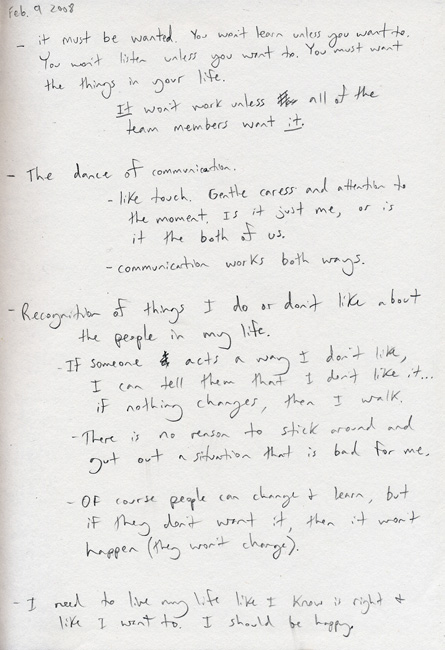 Feb. 9 2008
- it must be wanted. You won't learn unless you want to.
You won't listen unless you want to. You must want
the things in your life.
It won't work unless all of the
team members want it.
- The dance of communication.
- like touch. Gentle caress and attention to
the moment. Is it just me, or is
it the both of us.
- communication works both ways.
- Recognition of things I do or don't like about
the people in my life.
- If someone acts a way I don't like,
I can tell them that I don't like it...
if nothing changes, then I walk.
- There is no reason to stick around and
gut out a situation that is bad for me.
- Of course people can change & learn, but
if they don't want it, then it won't
happen (they won't change).
- I need to live my life like I know is right &
like I want to. I should be happy.